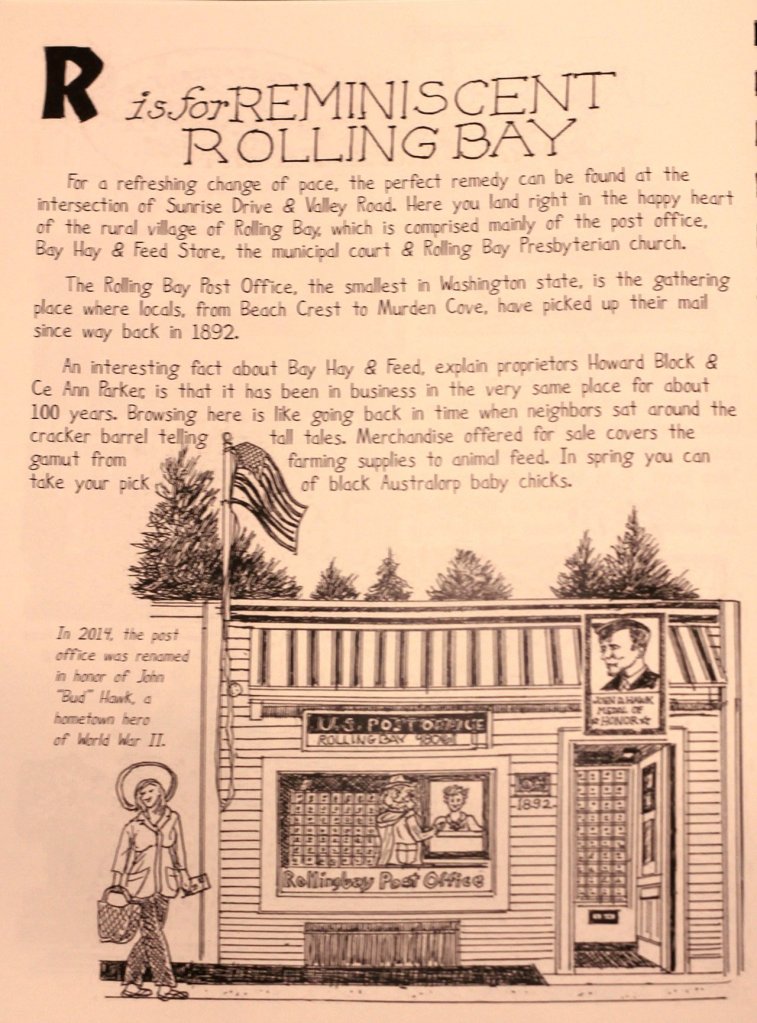 R is for REMINISCENT
ROLLING BAY
For a refreshing change of pace, the perfect remedy can be found at the
intersection of Sunrise Drive & Valley Road. Here you land right in the happy heart
of the rural village of Rolling Bay, which is comprised mainly of the post office,
Bay Hay & Feed Store, the municipal court & Rolling Bay Presbyterian church.
The Rolling Bay Post Office, the smallest in Washington state, is the gathering
place where locals, from Beach Crest to Murden Cove, have picked up their mail
since way back in 1892.
An interesting fact about Bay Hay & Feed, explain proprietors Howard Block &
Ce Ann Parker, is that it has been in business in the very same place for about
100 years. Browsing here is like going back in time when neighbors sat around the
cracker barrel telling tall tales. Merchandise offered for sale covers the
gamut from farming supplies to animal feed. In spring you can
take your pick of black Australorp baby chicks.
In 2014, the post
office was renamed
in honor of John
"Bud" Hawk, a
hometown hero
of World War II.
JOHN D. HAWK
MEDAL OF
HONOR
U.S. POST OFFICE
ROLLING BAY 98061
1892
Rollingbay Post Office